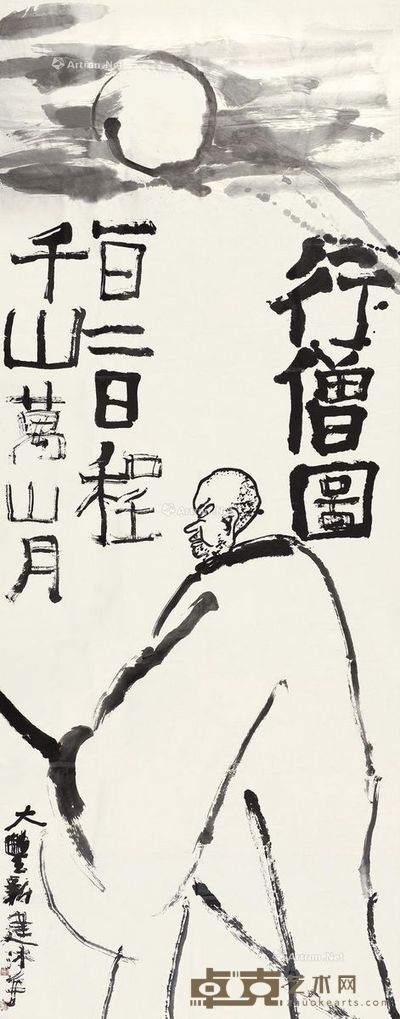 行僧圖
一日二日程
千山萬山月
大豐新建
Artron.Net
Artron.Net
Artron.Net
卓克艺术网
zhuokearts.com